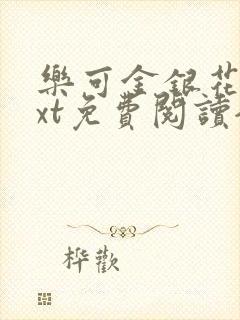 樂可金銀花
xt免費閱讀
桦歡